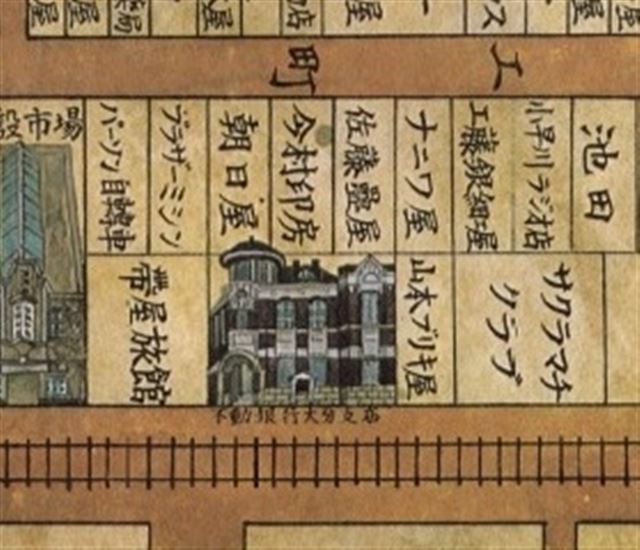 工町
池田
小早川ラジオ店
工藤銀細屋
ナニワ屋
佐藤疊屋
今村印房
朝日屋
ブラザーミシン
パーソン自轉車
設市場
サクラマチ
クラブ
山本ブリキ屋
帶屋旅館
不動銀行大分支店